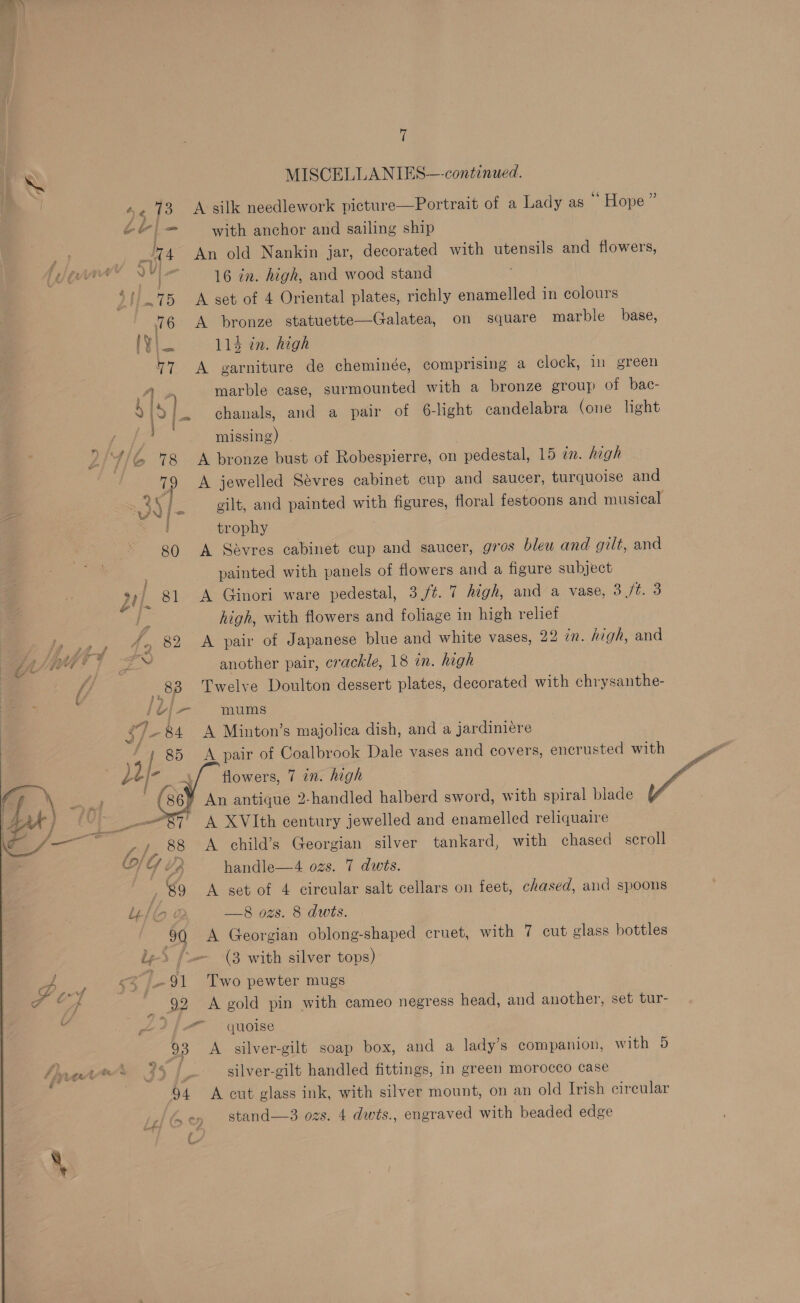 7
MISCELLANIES—continued.
73 A silk needlework picture—Portrait of a Lady as “Hope”
with anchor and sailing ship
74 An old Nankin jar, decorated with utensils and flowers,
16 in. high, and wood stand
75 A set of 4 Oriental plates, richly enamelled in colours
76 A bronze statuette—Galatea, on square marble base,
11½ in. high
77 A garniture de cheminée, comprising a clock, in green
marble case, surmounted with a bronze group of bac-
chanals, and a pair of 6-light candelabra (one light
missing)
78 A bronze bust of Robespierre, on pedestal, 15 in. high
79 A jewelled Sèvres cabinet cup and saucer, turquoise and
35/- gilt, and painted with figures, floral festoons and musical
trophy
80 A Sèvres cabinet cup and saucer, gros bleu and gilt, and
painted with panels of flowers and a figure subject
81 A Ginori ware pedestal, 3 ft. 7 high, and a vase, 3 ft. 3
high, with flowers and foliage in high relief
82 A pair of Japanese blue and white vases, 22 in. high, and
another pair, crackle, 18 in. high
83 Twelve Doulton dessert plates, decorated with chrysanthe-
mums
84 A Minton's majolica dish, and a jardinière
85 A pair of Coalbrook Dale vases and covers, encrusted with
flowers, 7 in. high
86 An antique 2-handled halberd sword, with spiral blade
87 A XVIth century jewelled and enamelled reliquaire
88 A child's Georgian silver tankard, with chased scroll
handle—4 ozs. 7 dwts.
89 A set of 4 circular salt cellars on feet, chased, and spoons
—8 ozs. 8 dwts.
90 A Georgian oblong-shaped cruet, with 7 cut glass bottles
(3 with silver tops)
91 Two pewter mugs
92 A gold pin with cameo negress head, and another, set tur-
quoise
93 A silver-gilt soap box, and a lady's companion, with 5
silver-gilt handled fittings, in green morocco case
94 A cut glass ink, with silver mount, on an old Irish circular
stand—3 ozs. 4 dwts., engraved with beaded edge